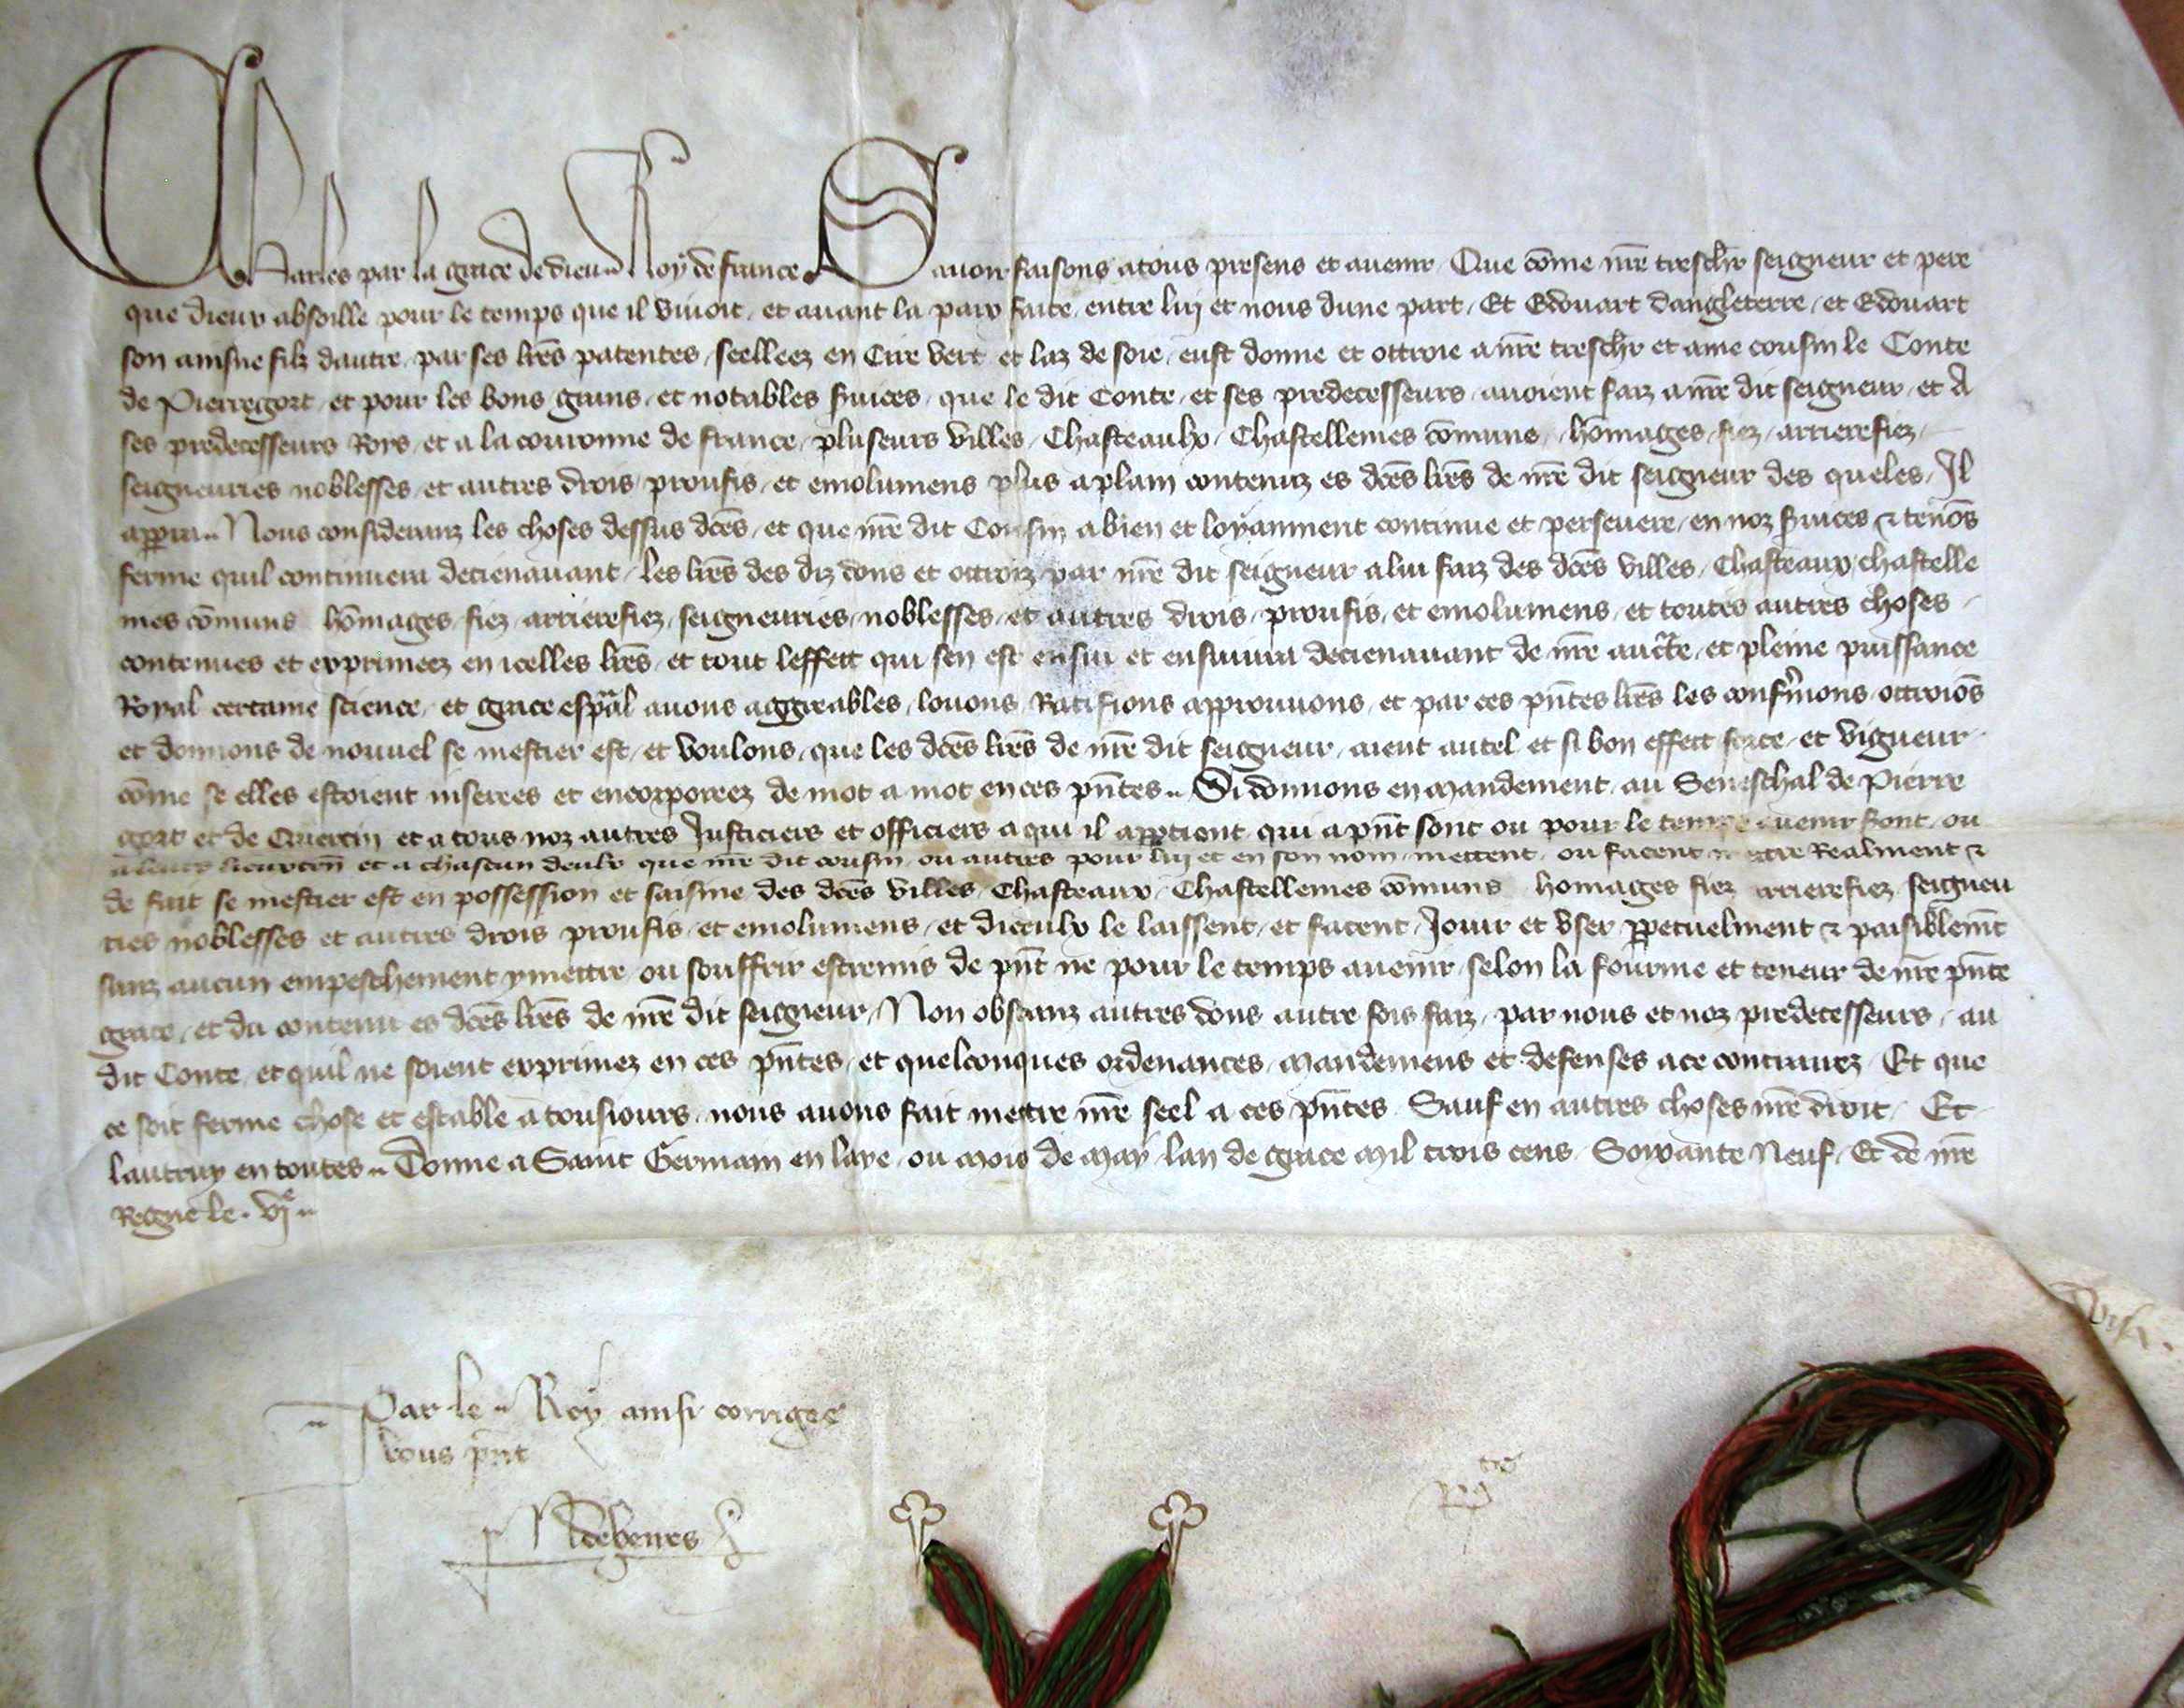 Charles par la grace de dieu Roy de france Sauoir faisons a tous presens et auenir Que cōme nr̄e treschr̄ seigneur et pere
que dieux absoille pour le temps que il viuoit, et auant la paix faite, entre lui et nous dune part, Et Edouart dangleterre, et Edouart
son ainsne filz dautre, par ses lr̄es patentes, seelleez en Cire vert et laz de soie, eust donne et ottroie a nr̄e treschr̄ et ame cousin le Conte
de Pierregort, et pour les bons grans, et notables s̄uices, que le dit Conte, et ses predecesseurs, auoient faiz a nr̄e dit seigneur, et A
ses predecesseurs Roys, et a la couronne de france, pluseurs villes, Chasteaulx, Chastellenies cōmuns, hōmages, fiez, arrierefiez,
seigneuries noblesses, et autres drois, proufis, et emolumens plus a plain contenuz es dc̄es lr̄es de nr̄e dit seigneur des queles, Il
apperra.. Nous considerans les choses dessus dc̄es, et que nr̄e dit Cousin a bien et loyaument continue et perseuere, en noz s̄uices & tenōs
ferme quil continuera decienauant, les lr̄es des diz dons et ottroiz par nr̄e dit seigneur a lui faiz des dc̄es villes, Chasteaux, chastelle
nies cōmuns hōmages, fiez, arrierefiez, seigneuries, noblesses, et autres drois, proufis, et emolumens, et toutes autres choses
contenues et exprimeez en icelles lr̄es, et tout leffect qui sen est ensui et ensuiura decienauant de nr̄e auctte, et pleine puissance
Royal certaine science, et grace esp̄al auons aggreables, louons, Ratifions approuuons, et par ces pn̄tes lr̄es les conf̄mons, ottroiōs
et donnons de nouuel se mestier est, et voulons, que les dc̄es lr̄es de nr̄e dit seigneur, aient autel et si bon effect force, et vigueur
cōme se elles estoient inserees et encorporeez de mot a mot en ces pn̄tes.. Si donnons en mandement, au Seneschal de Pierre
gort et de Quercin et a tous noz autres Justiciers et officiers a qui il appartient qui a pn̄t sont ou pour le temps auenir s̄ont, ou
a leurs lieuxten̄ et a chascun deulx que nr̄e dit cousin, ou autres pour lui et en son nom, mettent, ou facent mettre Realment &
de fait se mestier est en possession et saisine des dc̄es villes, Chasteaux, Chastellenies cōmuns homages fiez arrierefiez, seigneu
ries noblesses et autres drois proufis, et emolumens, et diceulx le laissent, et facent, Jouir et vser, ꝑpetuelment & paisiblem̄t
sanz aucun empeschement y mettre ou souffrir estre mis de pn̄t ne pour le temps auenir, selon la fourme et teneur de nr̄e pn̄te
grace, et du contenu es dc̄es lr̄es de nr̄e dit seigneur, Non obstanz autres dons autre fois faiz, par nous et noz predecesseurs, au
dit Conte, et quil ne soient exprimez en ces pn̄tes, et quelconques ordenances, mandemens et defenses a ce contraires, Et que
ce soit ferme chose et estable a tousiours, nous auons fait mettre nr̄e seel a ces pn̄tes Sauf en autres choses nr̄e droit, Et
lautruy en toutes.. Donne a Saint Germain en laye, ou mois de May, lan de grace Mil trois cens Soixante Neuf, Et de nr̄e
Regne le .vj.e
Par le Roy ainsi corrigee
vous pn̄t
N de veires
visa.